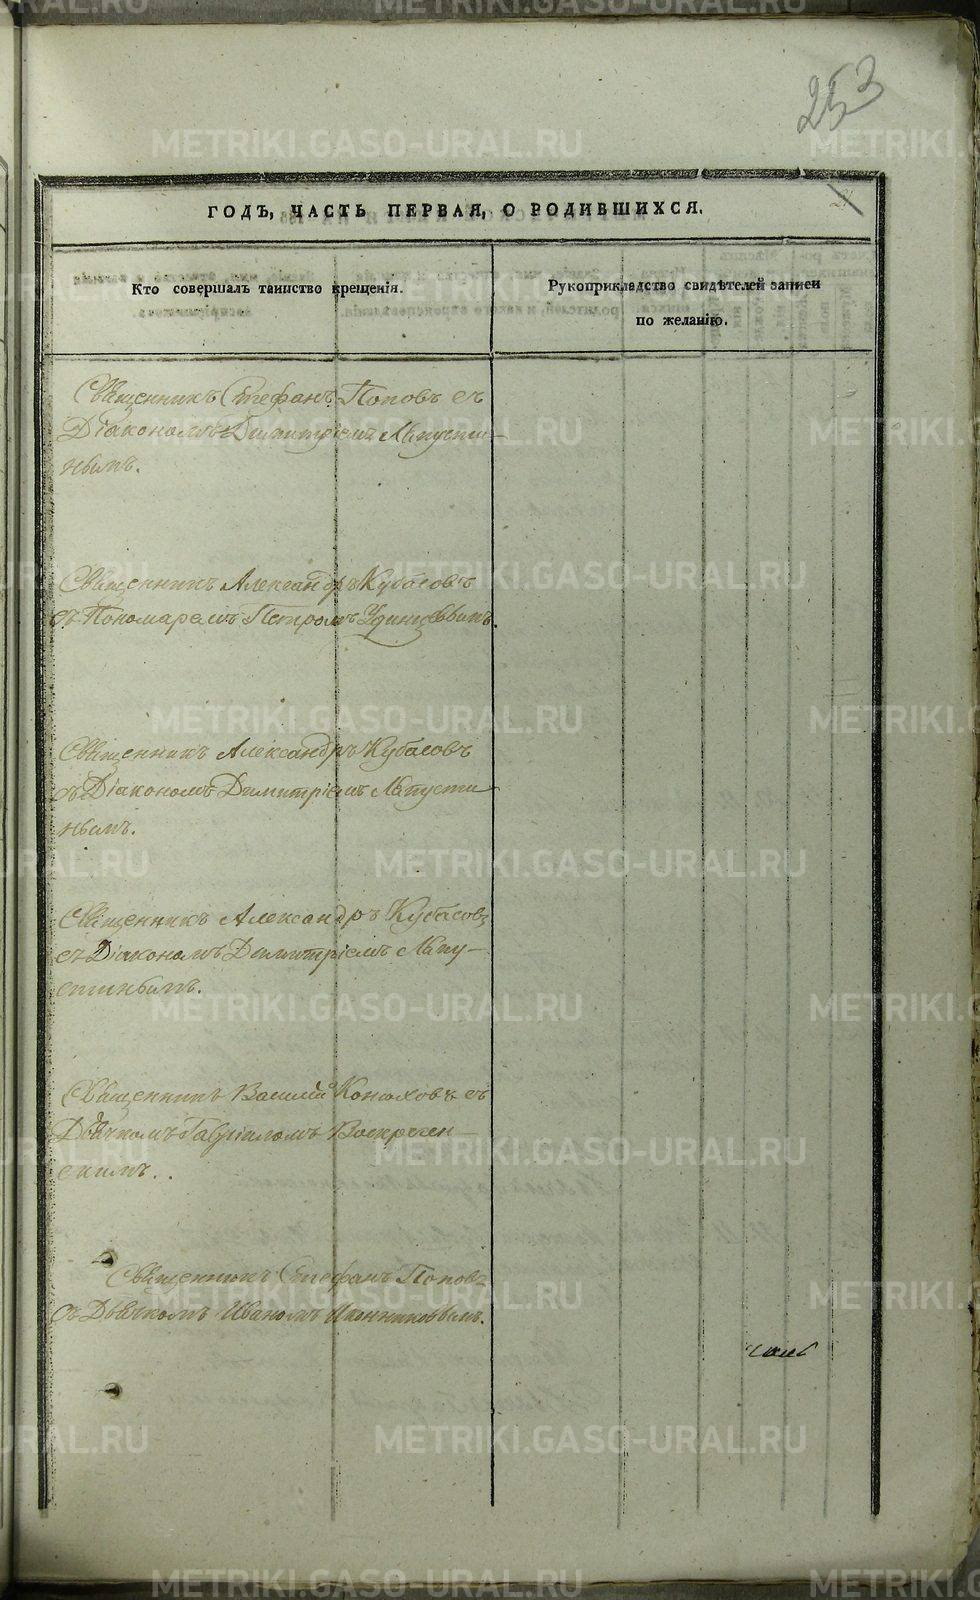 253
ГОДЪ, ЧАСТЬ ПЕРВАЯ, О РОДИВШИХСЯ.
Кто совершалъ таинство крещенія.
Рукоприкладство свидѣтелей записи
по желанію.
Священникъ Стефанъ Поповъ съ
Діакономъ Димитріемъ Лапусти-
нымъ.
Священникъ Александръ Кубасовъ
съ Пономаремъ Петромъ Удинцовымъ.
Священникъ Александръ Кубасовъ
съ Діакономъ Димитріемъ Лапусти
нымъ.
Священникъ Александръ Кубасовъ
съ Діакономъ Димитріемъ Лапу-
стинымъ.
Священникъ Василій Конюховъ съ
Дьячкомъ Гавріиломъ Воскресен-
скимъ.
Священникъ Стефанъ Поповъ
съ Дьячкомъ Иваномъ Иконниковымъ.
METRIKI.GASO-URAL.RU